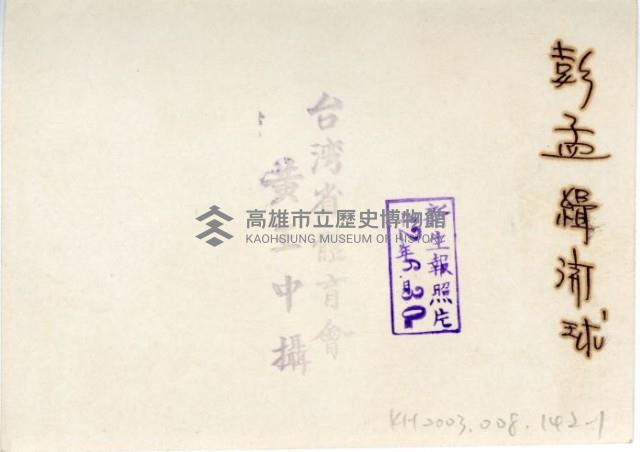 彭孟緝術球
新生報照片
年 月 日
台湾省體育會
黃 中攝
高雄市立歷史博物館
KAOHSIUNG MUSEUM OF HISTORY
KH2003.008.142-1